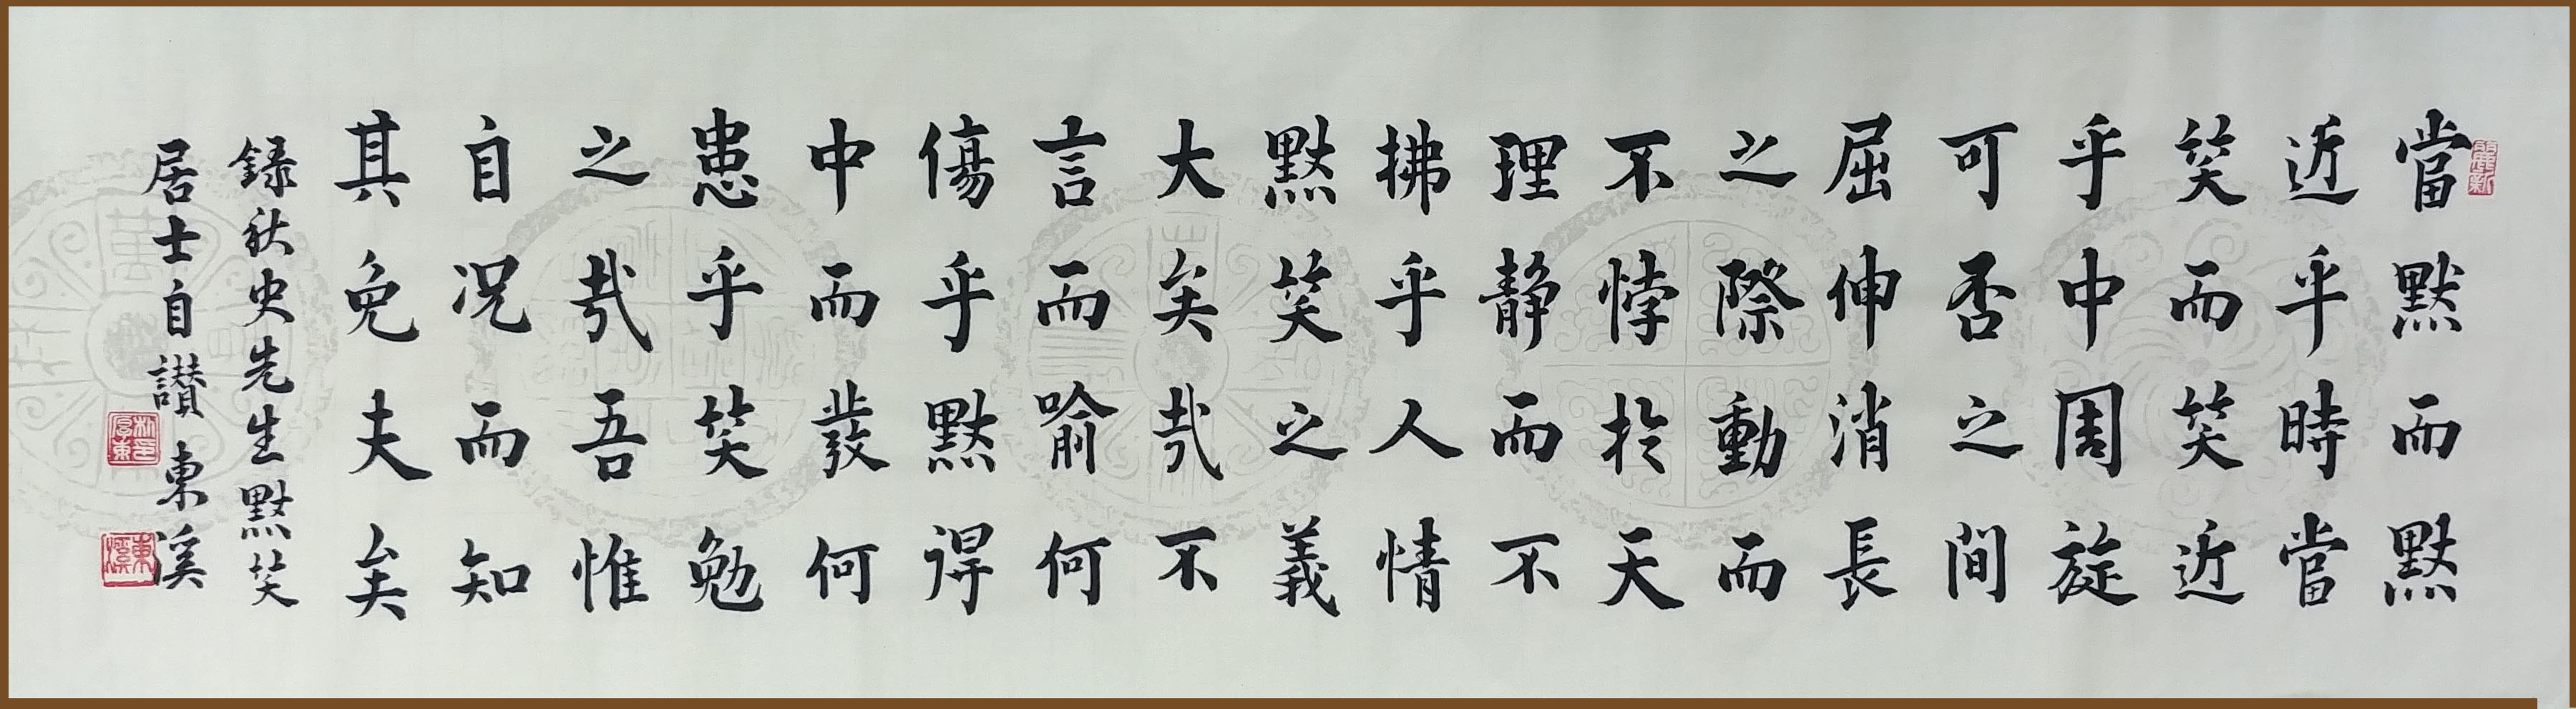 當默而默
近乎時當
笑而笑近
乎中周旋
可否之間
屈伸消長
之際動而
不悖於天
理靜而不
拂乎人情
默笑之義
大矣哉不
言而喻何
傷乎默得
中而發何
患乎笑勉
之哉吾惟
自况而知
其免夫矣
録秋史先生默笑
居士自讃 東溪
東溪